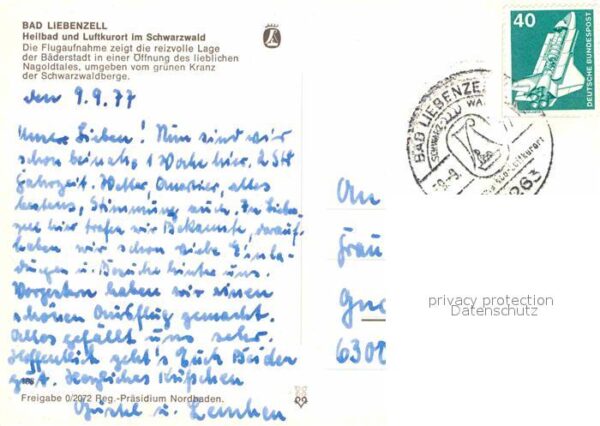 BAD LIEBENZELL
Heilbad und Luftkurort im Schwarzwald
Die Flugaufnahme zeigt die reizvolle Lage
der Bäderstadt in einer Öffnung des lieblichen
Nagoldtales, umgeben vom grünen Kranz
der Schwarzwaldberge.
den 9.9.77
Unsere Lieben! Nun sind wir
schon beinahe 1 Woche hier. 2 Std
Fahrzeit. Wetter, Quartier, alles
bestens, Stimmung auch. In Lieben-
zell hier trafen wir Bekannte, darauf
haben wir schon viele Einla-
dungen u. Besuche hinter uns.
Vorgestern haben wir einen
schönen Ausflug gemacht.
Alles gefällt uns sehr.
Hoffentlich geht's Euch Beiden
gut. Herzliches Küßchen
Freigabe 0/2072 Reg.-Präsidium Nordbaden.
u. Lenchen
An
Frau
6300
40
DEUTSCHE BUNDESPOST
BAD LIEBENZELL
SCHWARZWALD
privacy protection
Datenschutz